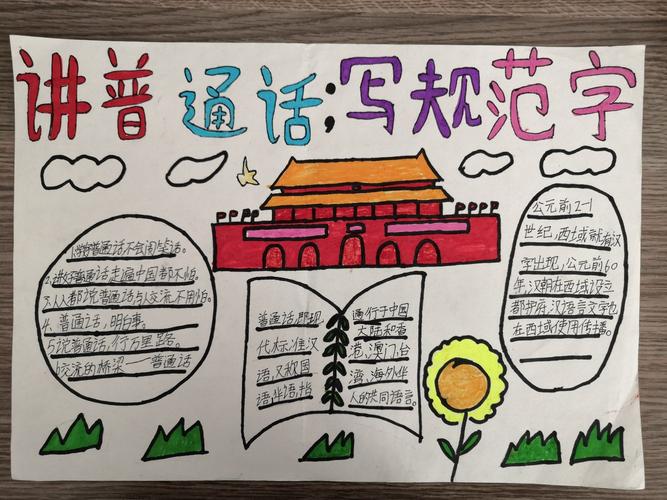 讲普通话;写规范字
1.学好普通话,不会闹笑话。
2.讲好普通话走遍中国都不怕。
3.人人都说普通话与人交流不用怕。
4、普通话,明白事。
5说普通话,行万里路。
6交流的桥梁——普通话
普通话,即现
代标准汉
语,又称国
语,华语,指
通行于中国
大陆和香
港,澳门,台
湾,海外华
人的共同语言。
公元前2-1
世纪,西域就有汉
字出现,公元前60
年,汉朝在西域设立
都护府,汉语言文字也
在西域使用传播。